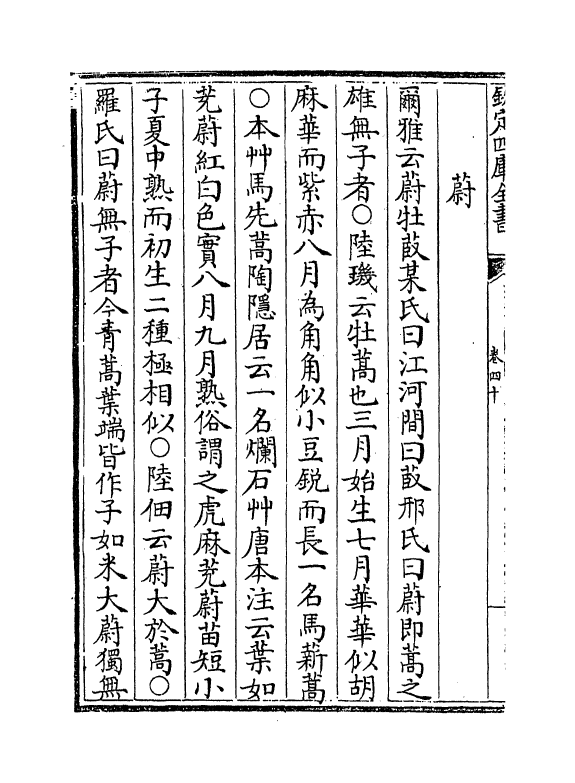 欽定四庫全書
卷四十
蔚
爾雅云蔚牡菣某氏曰江河間曰菣邢氏曰蔚即蒿之
雄無子者○陸璣云牡蒿也三月始生七月華華似胡
麻華而紫赤八月為角角似小豆鋭而長一名馬薪蒿
○本艸馬先蒿陶隱居云一名爛石艸唐本注云葉如
茺蔚紅白色實八月九月熟俗謂之虎麻茺蔚苗短小
子夏中熟而初生二種極相似○陸佃云蔚大於蒿○
羅氏曰蔚無子者今青蒿葉端皆作子如米大蔚獨無